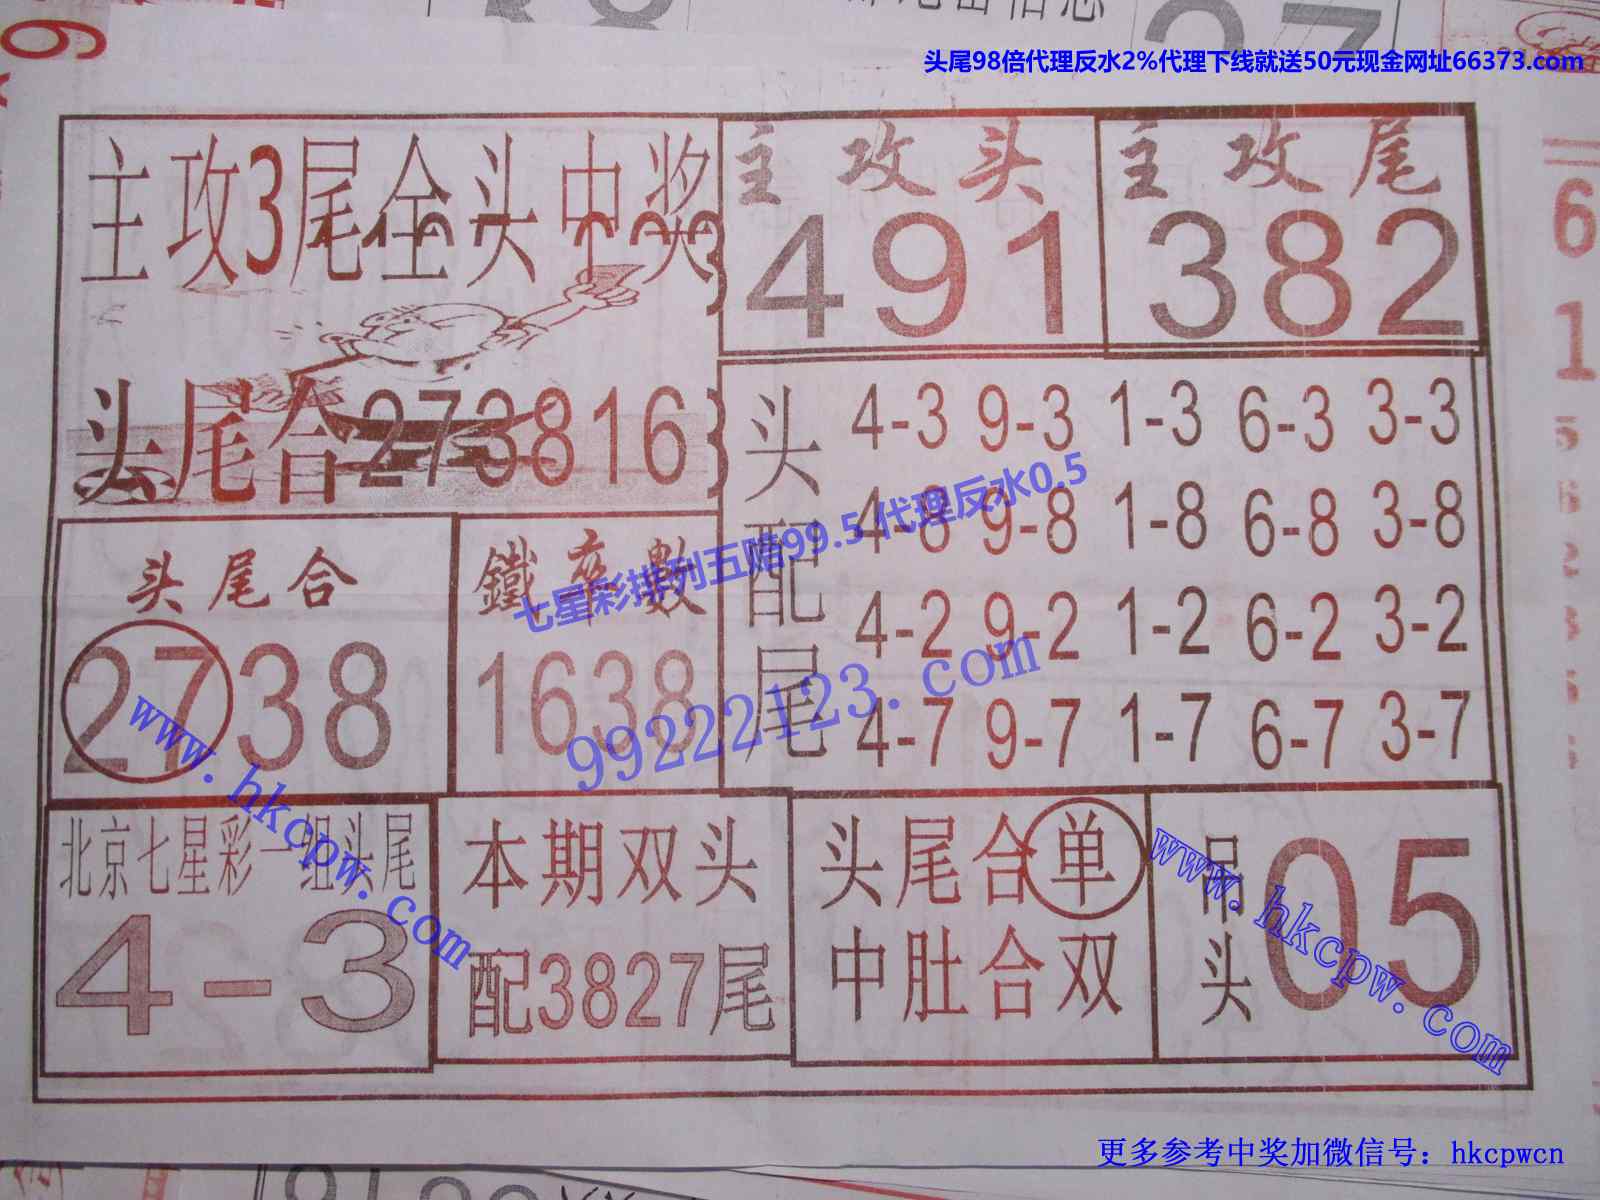 头尾98倍代理反水2%代理下线就送50元现金网址66373.com
主攻3尾全头中奖
主攻头
491
主攻尾
382
头尾合273816
头配尾
4-3 9-3 1-3 6-3 3-3
4-8 9-8 1-8 6-8 3-8
4-2 9-2 1-2 6-2 3-2
4-7 9-7 1-7 6-7 3-7
头尾合
2738
鐵卒數
1638
七星彩排列五赔99.5代理反水0.5
99222123.com
www.hkcpw.com
北京七星彩一组头尾
4-3
本期双头
配3827尾
头尾合单
中肚合双
吊头
05
www.hkcpw.com
6
1
5
6
2
更多参考中奖加微信号：hkcpwcn